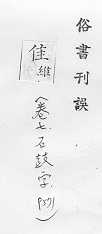 俗書刊誤
隹維
(卷七石鼓字例)